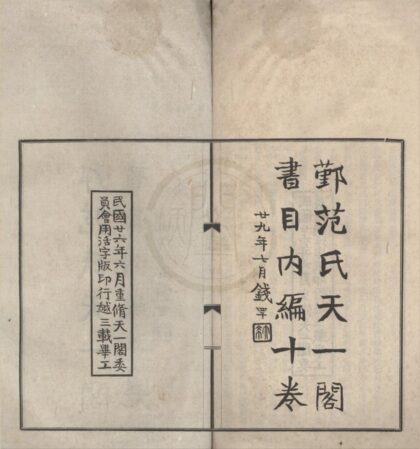 鄞范氏天一閣
書目内編十卷
廿九年六月錢罕
民國廿六年六月重脩天一閣委
員會用活字版印行越三載畢工